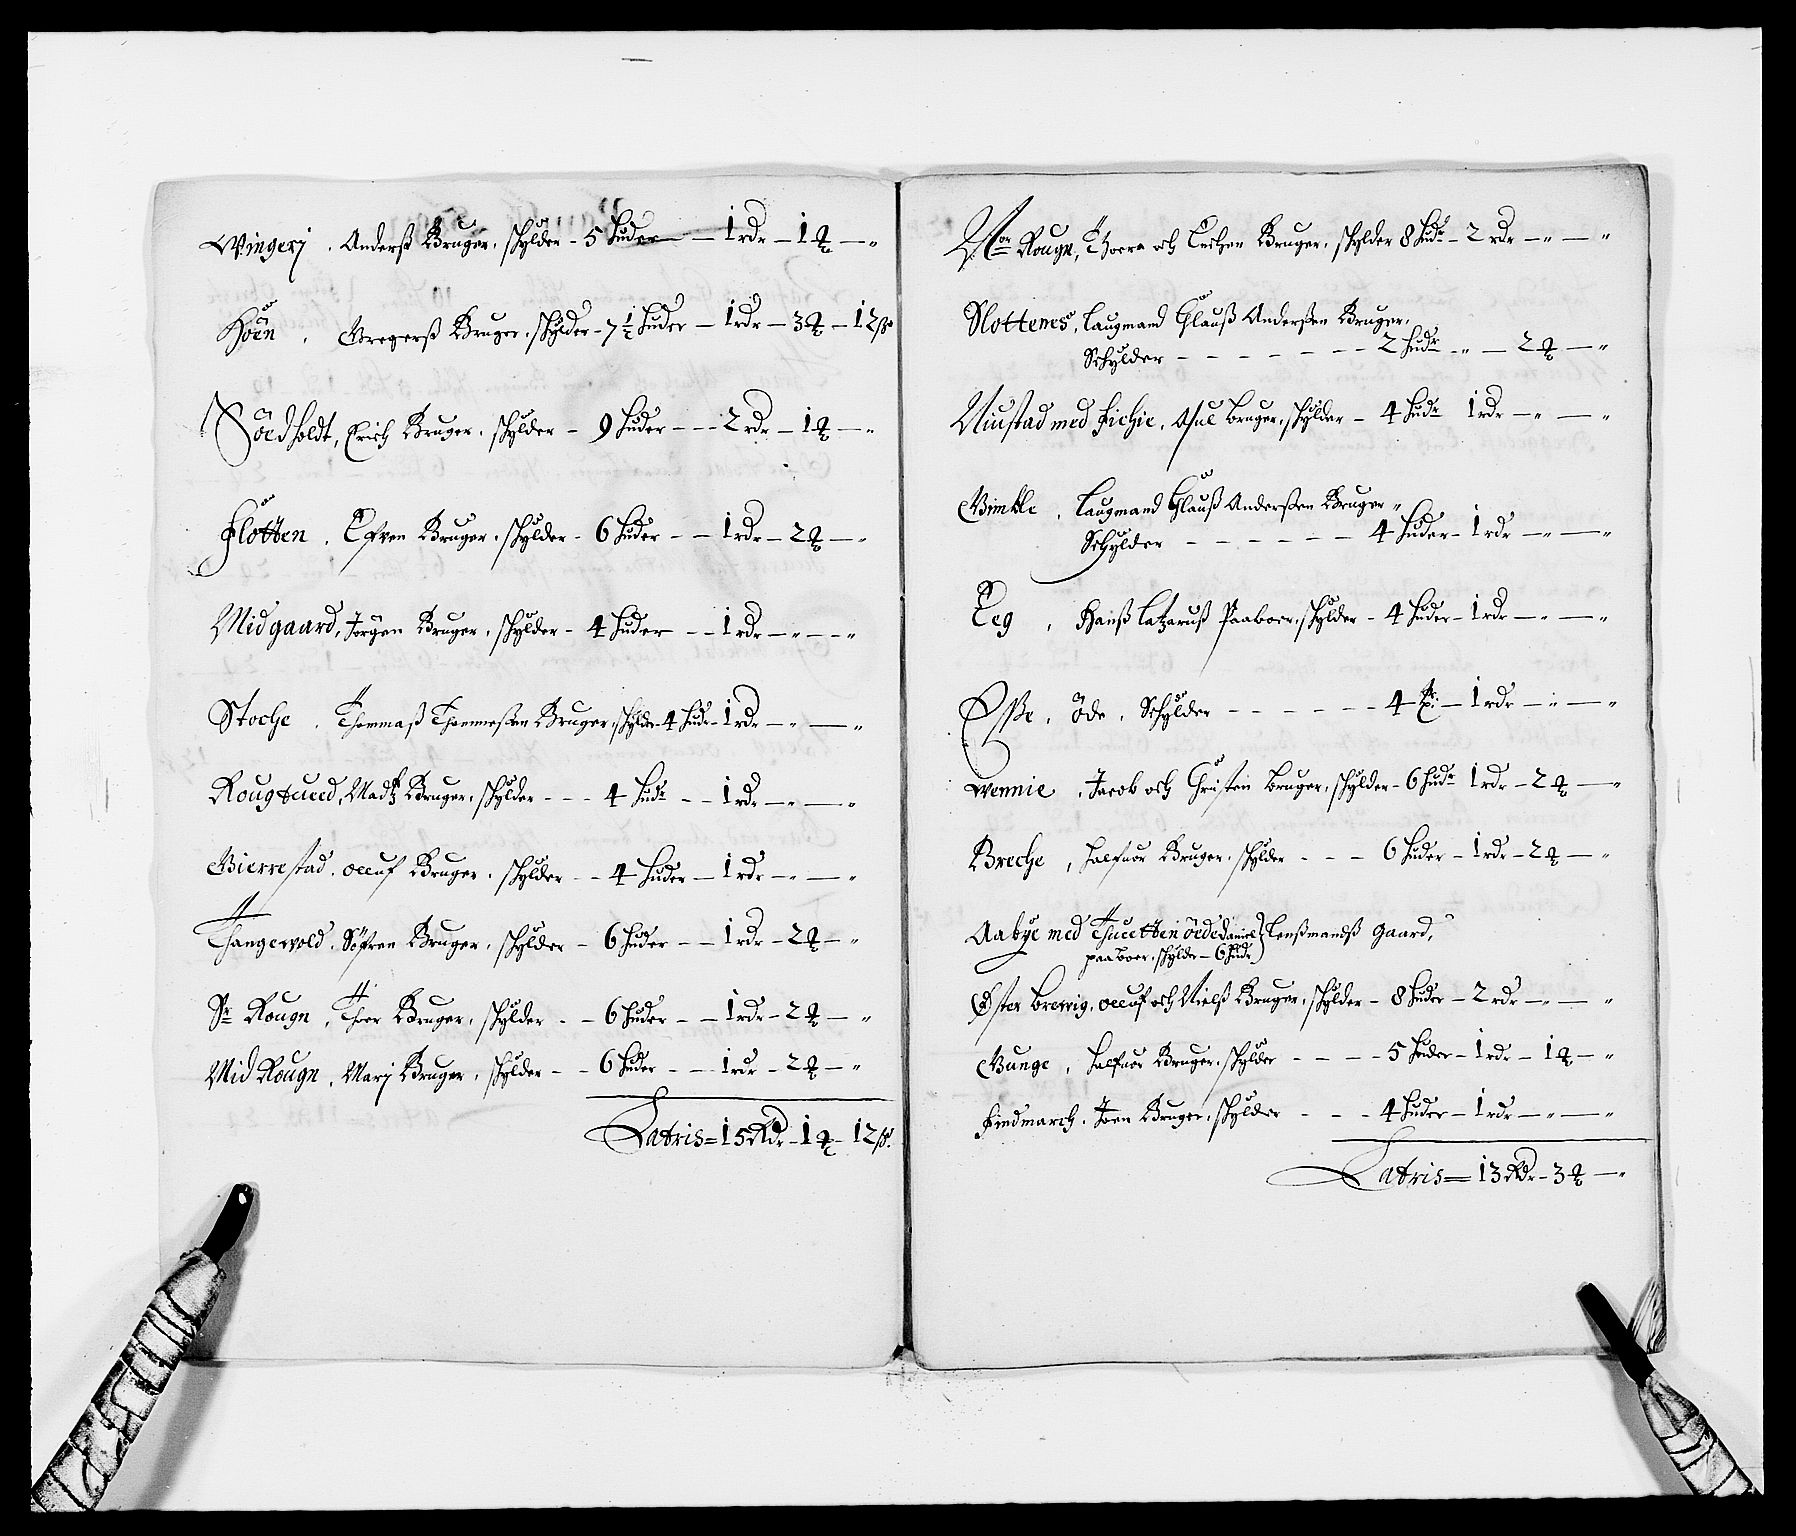 Wingerj . Anderß Bruger, schylder - 5 huder — 1 rdr — 1 ꝗ — "
Höen . Gregerß Bruger, schylder - 7 1/2 huder — 1 rdr — 3 ꝗ — 12 ß
Söedholdt, Erich Bruger, schylder - 9 huder - - - 2 rdr — 1 ꝗ — "
Flötten . Efven Bruger, schylder - 6 huder - - 1 rdr — 2 ꝗ — "
Midgaard, Jörgen Bruger, schylder - 4 huder - - 1 rdr — " — "
Stoche . Thommaß Thommeßen Bruger, schylder 4 hudr - 1 rdr — " — "
Rougtueed, Madtz Bruger, schylder - - - 4 hudr - - 1 rdr — " — "
Bierrestad, oeluf Bruger, schylder - - 4 huder — 1 rdr — " — "
Thangewold, Söfren Bruger, schylder - 6 huder - - 1 rdr - 2 ꝗ — "
Sr Rougn, Thor Bruger, schylder - - 6 huder - - 1 rdr - 2 ꝗ — "
Mid Rougn, Marj Bruger, schylder - - 6 huder - - 1 rdr - 2 ꝗ — "
Latris = 15 Rdr - 1 ꝗ - 12 ß.
Nor Rougn, Thorra och Erichen Bruger, schylder 8 hudr - 2 rdr — " — "
Slottenes, Laugmand Clauß Anderßen Bruger,
Schylder - - - - - - - 2 hudr - " — 2 ꝗ — "
Niustad med Fichie, Asul Bruger, schylder - 4 hudr 1 rdr — " — "
Bimble . Laugmand Clauß Anderßen Bruger
Schylder - - - - - - 4 huder - 1 rdr — " — "
Eeg , Hanß Latzaruß Paaboer, schylder - 4 huder - 1 rdr — " — "
Öde . Schylder - - - - - - 4 — 1 rdr — " — "
Wennie , Jacob och Christen Bruger, schylder - 6 hudr 1 rdr - 2 ꝗ — "
Breche , halfuor Bruger, schylder - - - 6 huder - 1 rdr - 2 ꝗ — "
Aabye med Thuetten öede Daniel } Lenßmandß gaard,
paaboer, schylder - 6 hudr }
Öster brewig, oeluf och Nielß Bruger, schylder - 8 huder - 2 rdr — " — "
Bunge , halfuor Bruger, schylder - - - - 5 huder - 1 rdr - 1 ꝗ — "
Findmarch . Joen Bruger, schylder - - - 4 huder - 1 rdr — " — "
Latris = 13 Rdr - 3 ꝗ — "